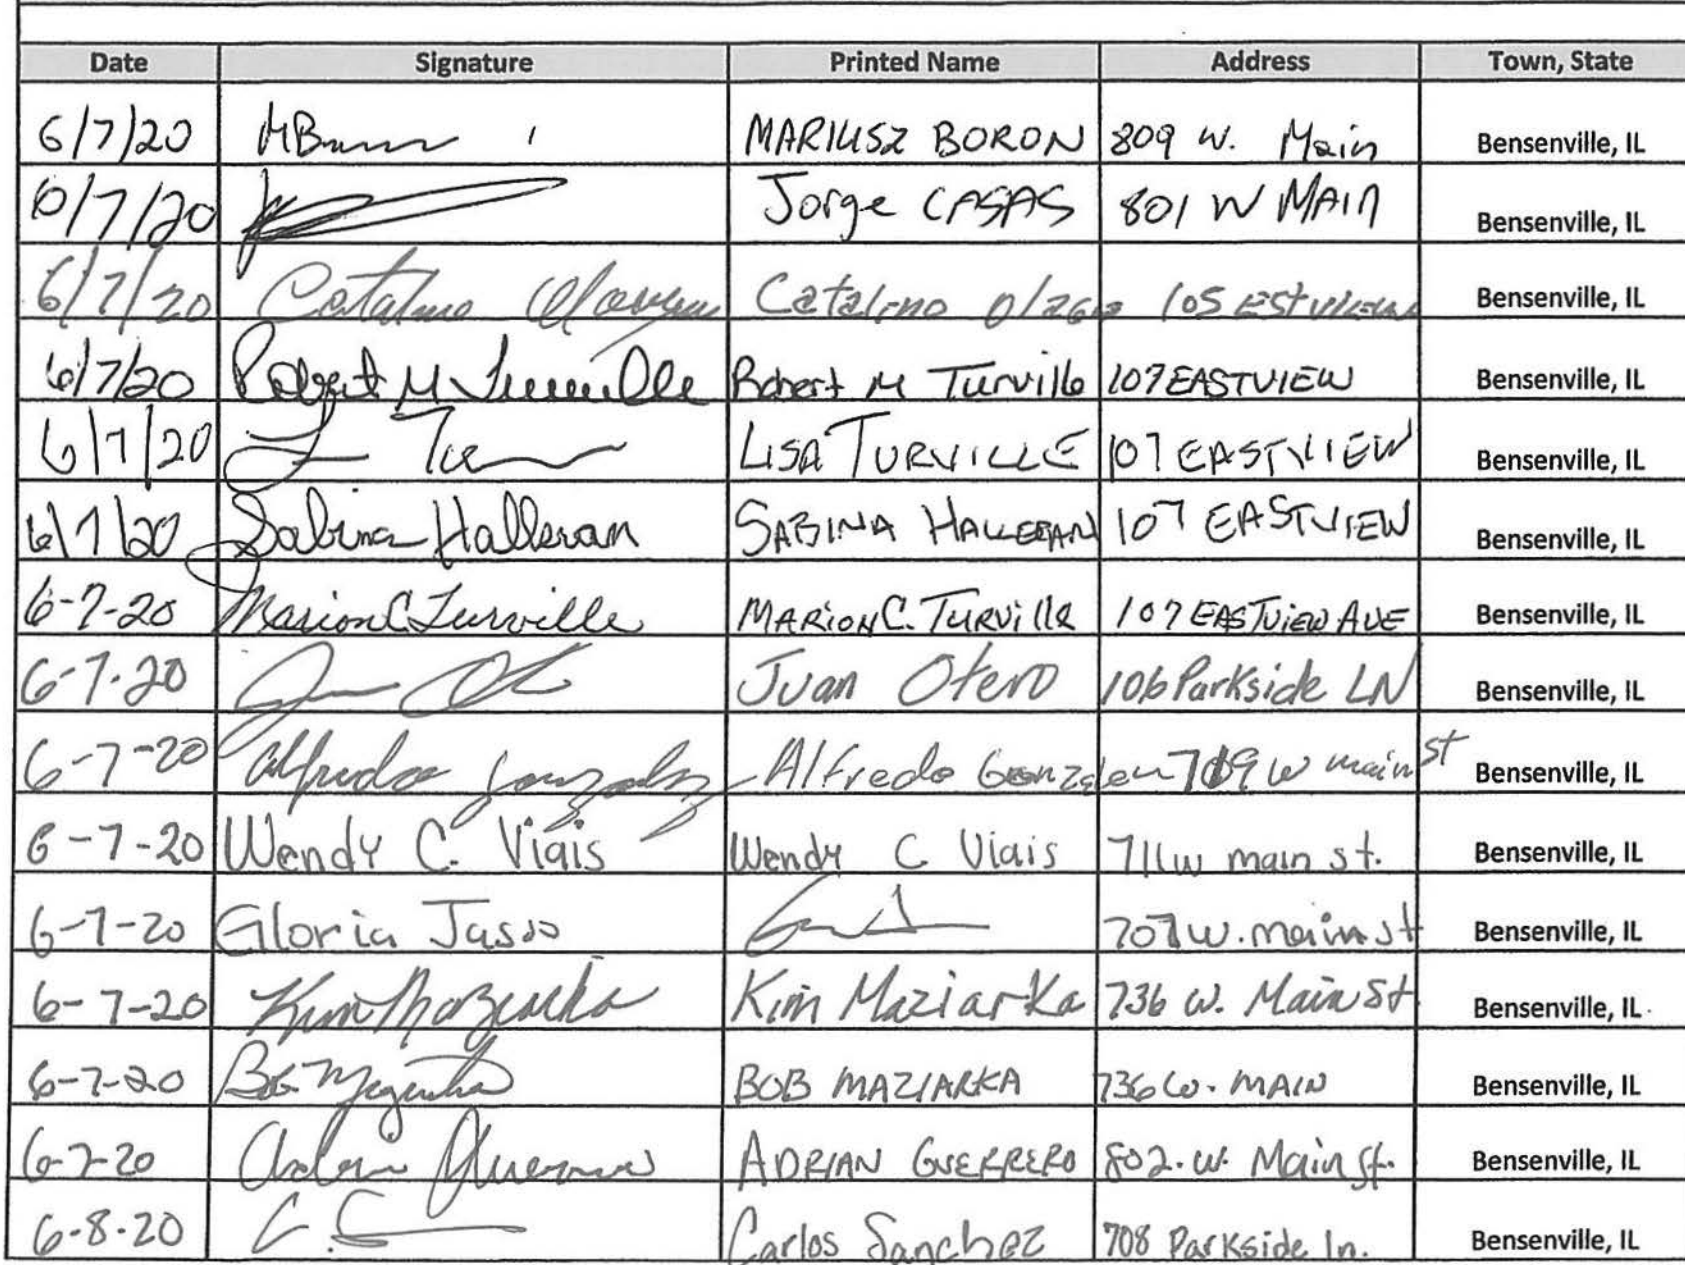 Date Signature Printed Name Address Town, State
6/7/20 MARIUSZ BORON 809 W. Main Bensenville, IL
6/7/20 Jorge CASAS 801 W MAIN Bensenville, IL
6/7/20 Catalino Catalino 105 Bensenville, IL
6/7/20 Robert M Turville Robert M Turville 107 EASTVIEW Bensenville, IL
6/7/20 LISA TURVILLE 107 EASTVIEW Bensenville, IL
6/7/20 Sabina Halleran SABINA HALLERAN 107 EASTVIEW Bensenville, IL
6-7-20 Marion C. Turville MARION C. TURVILLE 107 EASTVIEW AVE Bensenville, IL
6-7-20 Juan Otero 106 Parkside LN Bensenville, IL
6-7-20 Alfredo Gonzalez Alfredo Gonzalez W main st Bensenville, IL
6-7-20 Wendy C. Viais Wendy C Viais 711 W main st. Bensenville, IL
6-7-20 Gloria Jasso 707 W. main st Bensenville, IL
6-7-20 Kim Maziarka Kim Maziarka 736 W. Main St Bensenville, IL
6-7-20 Bob Maziarka BOB MAZIARKA 736 W. MAIN Bensenville, IL
6-7-20 Adrian Guerrero ADRIAN GUERRERO 802. W. Main St. Bensenville, IL
6-8-20 Carlos Sanchez 708 Parkside ln. Bensenville, IL